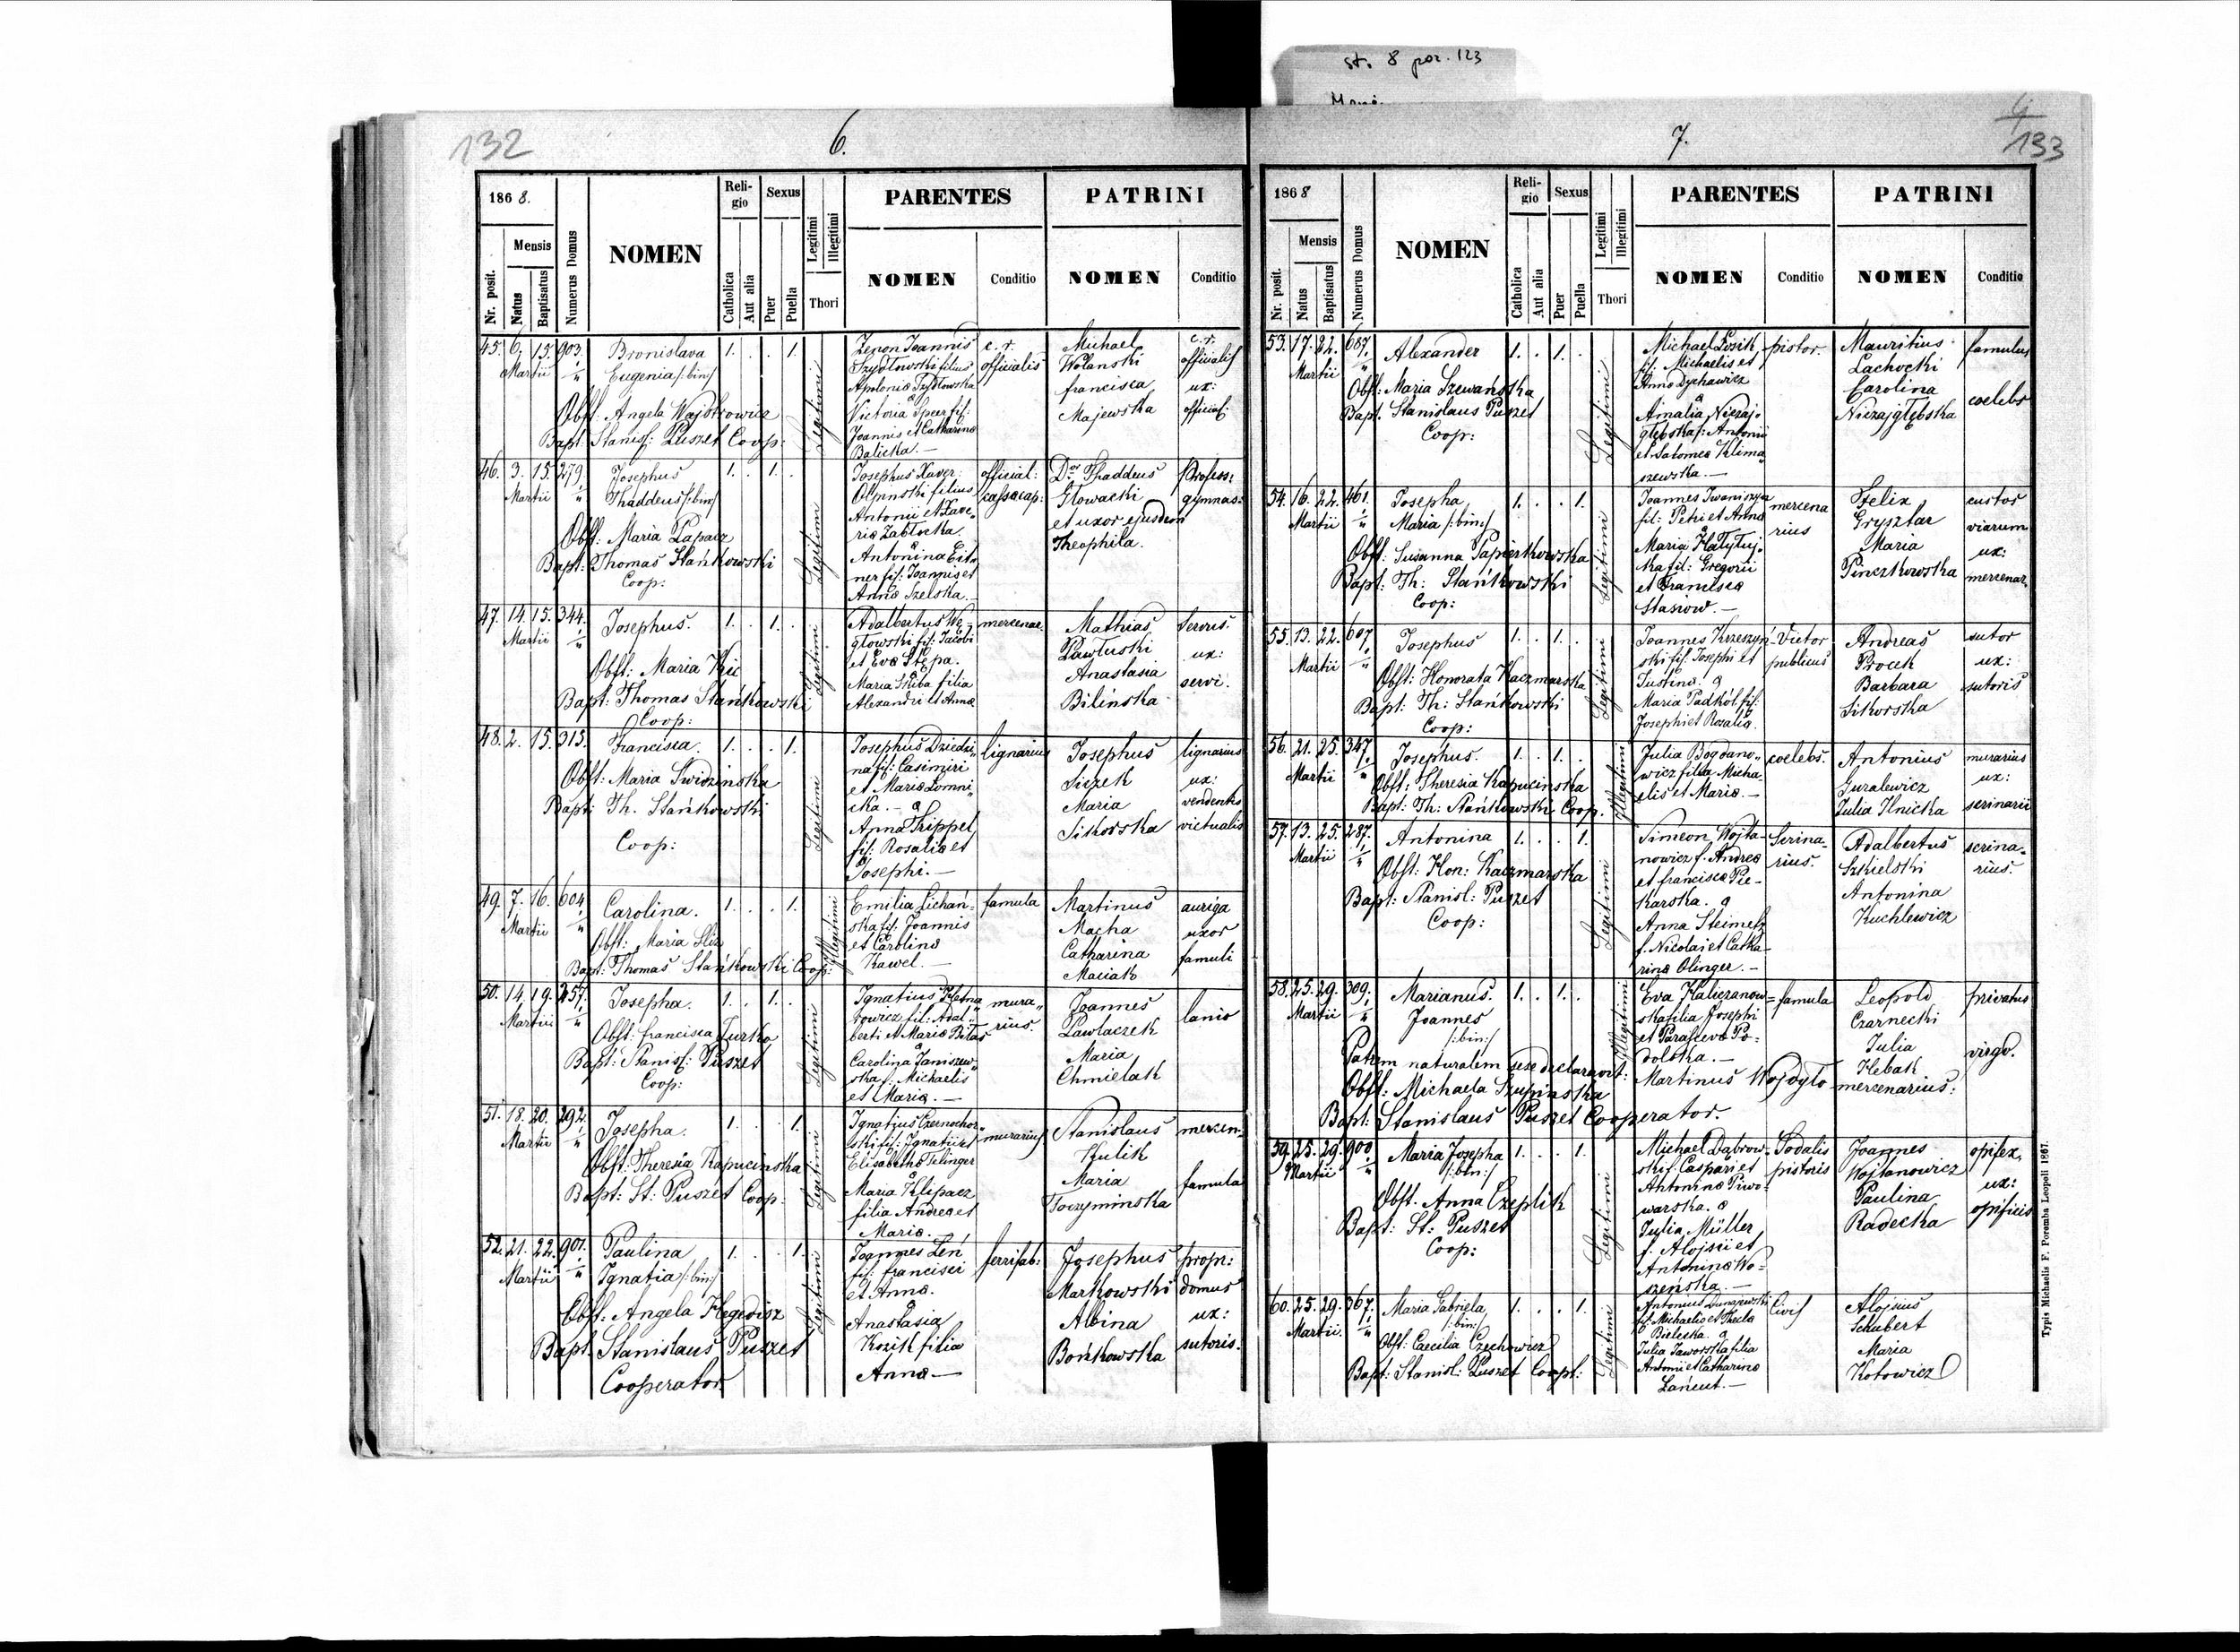 st. 8 poz. 123
132
6.
1868.
Nr. posit.
Mensis
Natus
Baptisatus
Numerus Domus
NOMEN
Reli-
gio
Catholica
Aut alia
Sexus
Puer
Puella
Legitimi
Illegitimi
Thori
PARENTES
NOMEN
Conditio
PATRINI
NOMEN
Conditio
45. 6. 15. 903. Bronislava 1. . . 1.
Martii
Eugenia /:bin:/
Obst. Angela Wajdowicz
Bapt. Stanisl: Puszet Coop:
Legitimi
Zenon Joannis
Szydłowski filius
Apolonia Szydłowska
&
Victoria Speer fil:
Joannis et Catharina
Balicka. —
c. r.
officialis
Michael
Wolanski
francisca
Majewska
c. r.
officialis
ux:
official:
46. 3. 15. 279. Josephus 1. . 1. .
Martii
Thaddeus /:bin:/
Obst. Maria Łapacz
Bapt: Thomas Stańkowski
Coop:
Legitimi
Josephus Xaver
filius
Antonii et Xave„
ria Zabłocka.
&
Antonina Eit„
ner fil: Joannis et
Anna Szelska. —
official:
Dor Thaddeus
Głowacki
et uxor ejusdem
Theophila.
Profess:
gymnas:
47. 14. 15. 344. Josephus. 1. . 1. .
Martii
Obst: Maria
Bapt: Thomas Stańkowski
Coop:
Legitimi
Adalbertus Wę„
głowski fil: Jacobi
et Eva Stępa.
&
Maria Skiba filia
Alexandri et Anna
mercenar.
Mathias
Pawłuski
Anastasia
Bilinska
Servus.
ux:
servi.
48. 2. 15. 315. Francisca. 1. . . 1.
Martii
Obst: Maria Swidzinska
Bapt: Th. Stańkowski
Coop:
Legitimi
Josephus Dziedzi„
na fil: Casimiri
et Maria Łomni„
cka. — &
Anna Trippel
fil: Rosalia et
Josephi. —
lignarius
Josephus
Siczek
Maria
Sikorska
lignarius
ux:
vendentis
victualis
49. 7. 16. 604. Carolina. 1. . . 1.
Martii
Obst: Maria Sliz
Bapt: Thomas Stańkowski Coop:
Illegitimi
Emilia Lichań„
ska fil. Joannis
et Carolina
Kawel. —
famula
Martinus
Macha
Catharina
Maciak
auriga
uxor
famuli
50. 14. 19. 257. Josepha. 1. . 1. .
Martii
Obst: francisca Turska
Bapt: Stanisl: Puszet
Coop:
Legitimi
Ignatius
fil: Adal„
berti et Maria Bitas
&
Carolina Janiszew„
ska f: Michaelis
et Maria. —
mura„
rius.
Joannes
Pawlaczek
Maria
Chmielak
lanio
51. 18. 20. 292. Josepha. 1. . . 1.
Martii
Obst: Theresia Kapucinska
Bapt: St: Puszet Coop:
Legitimi
Ignatius Czernochor„
ski fil: Ignatii et
Elisabetha Tilinger
&
Maria Klipacz
filia Andrea et
Maria.
murarius
Stanislaus
Kulik
Maria
Toczyminska
mercen.
famula
52. 21. 22. 901. Paulina 1. . . 1.
Martii
Ignatia /:bin:/
Obst. Angela Hegedisz
Bapt. Stanislaus Puszet
Cooperator.
Legitimi
Joannes Len
fil: francisci
et Anna.
&
Anastasia
Kozik filia
Anna —
ferrifab:
Josephus
Markowski
Albina
Bońkowska
propr:
domus
ux:
sutoris.
4
133
7.
1868
Nr. posit.
Mensis
Natus
Baptisatus
Numerus Domus
NOMEN
Reli-
gio
Catholica
Aut alia
Sexus
Puer
Puella
Legitimi
Illegitimi
Thori
PARENTES
NOMEN
Conditio
PATRINI
NOMEN
Conditio
53. 17. 22. 687. Alexander 1. . 1. .
Martii
Obst: Maria Szewańska
Bapt: Stanislaus Puszet
Coop:
Legitimi
Michael Łozik
fil: Michaelis et
Anna Dychawicz
&
Amalia Niezaj„
głębska f: Antonii
et Salomea Klima
szewska. —
pistor.
Mauritius
Lachocki
Carolina
Niezajgłębska
famulus
coelebs
54. 16. 22. 461. Josepha 1. . . 1.
Martii
Maria /:bin:/
Obst: Susanna Papierkowska
Bapt: Th: Stańkowski
Coop:
Legitimi
Joannes
fil: Petri et Anna
&
Maria
ka fil: Gregorii
et Francisca
Stasiow. —
mercena
rius
Felix
Grysztar
Maria
Pinczkowska
custos
viarum
ux:
mercenar.
55. 13. 22. 607. Josephus 1. . 1. .
Martii
Obst: Honorata Kaczmarska
Bapt: Th: Stańkowski
Coop:
Legitimi
Joannes Krzeszyń„
ski fil: Josephi et
Justina. &
Maria Padkół fil:
Josephi et Rosalia.
Victor
publicus
Andreas
Procek
Barbara
Sikorska
sutor
ux:
sutoris
56. 21. 25. 347. Josephus. 1. . 1. .
Martii
Obst: Theresia Kapucinska
Bapt: Th: Stańkowski Coop.
Illegitimi
Julia Bogdano„
wicz filia Micha„
elis et Maria. —
coelebs.
Antonius
Guralewicz
Julia Ilnicka
murarius
ux:
scrinarii
57. 13. 25. 287. Antonina 1. . . 1.
Martii
Obst: Hon: Kaczmarska
Bapt: Stanisl: Puszet
Coop:
Legitimi
Simeon Wojta„
nowicz f. Andrea
et francisca Pie„
karska. &
Anna Steimetz
f. Nicolai et Catha„
rina Olinger. —
Scrina„
rius.
Adalbertus
Szkielski
Antonina
Kuchlewicz
scrina„
rius.
58. 25. 29. 309. Marianus. 1. . 1. .
Martii
Joannes
/:bin:/
Illegitimi
Eva Kaliczanow„
ska filia Josephi
et Parasceva Po„
dolska. —
famula
Leopold
Czarnecki
Julia
Hebak
privatus
virgo.
Patrem naturalem sese declaravit: Martinus Wojdyło mercenarius:
Obst: Michaela Szupinska
Bapt: Stanislaus Puszet Cooperator.
59. 25. 29. 900. Maria Josepha 1. . . 1.
Martii
/:bin:/
Obst. Anna Czeplik
Bapt: St: Puszet
Coop:
Legitimi
Michael Dąbrow„
ski f. Caspari et
Antonina Piwo„
warska. &
Julia Müller
f. Alojsii et
Antonina Wo„
szeńska. —
Sodalis
pistoris
Joannes
Wojtanowicz
Paulina
Radecka
opifex,
ux:
opificis
60. 25. 29. 367. Maria Gabriela 1. . . 1.
Martii.
/:bin:/
Obst: Caecilia Czechowicz
Bapt: Stanisl: Puszet Coopt:
Legitimi
Antonius Dunajewski
f. Michaelis et Thecla
Bielecka. &
Julia Jaworska filia
Antonii et Catharina
Łańcut. —
Civis
Alojsius
Schubert
Maria
Kotowicz
Typis Michaelis F. Poremba Leopoli 1867.